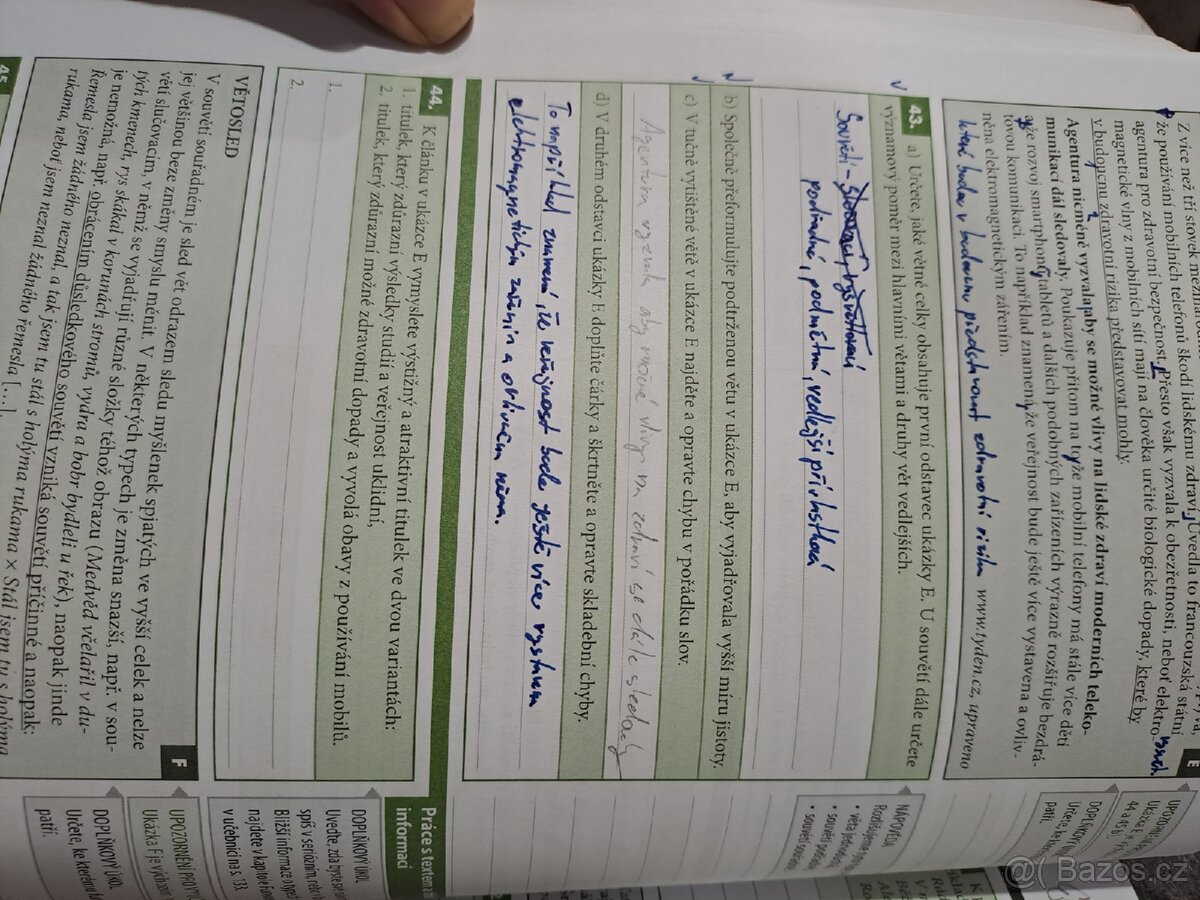 Z více než tří stovek
že používání mobilních telefonů škodí lidskému zdraví, Uvedla to francouzská státní
agentura pro zdravotní bezpečnost. Přesto však vyzvala k obezřetnosti, neboť elektro
magnetické vlny z mobilních sítí mají na člověka určité biologické dopady, které by
v budoucnu zdravotní rizika představovat mohly.
Agentura nicméně vyzvala, aby se možné vlivy na lidské zdraví moderních teleko-
munikací dál sledovaly. Poukazuje přitom na to, že mobilní telefony má stále více dětí
a že rozvoj smartphonů, tabletů a dalších podobných zařízeních výrazně rozšiřuje bezdrá-
tovou komunikaci. To například znamená, že veřejnost bude ještě více vystavena a ovliv-
něna elektromagnetickým zářením.
které budou v budoucnu představovat zdravotní rizika www.tyden.cz, upraveno
E
43. a) Určete, jaké větné celky obsahuje první odstavec ukázky E. U souvětí dále určete
významový poměr mezi hlavními větami a druhy vět vedlejších.
Souvětí -
podřadné, podmětná, vedlejší přívlastková
b) Společně přeformulujte podtrženou větu v ukázce E, aby vyjadřovala vyšší míru jistoty.
c) V tučně vytištěné větě v ukázce E najděte a opravte chybu v pořádku slov.
Agentura vyzvala aby možné vlivy na zdraví se dále sledovaly
d) V druhém odstavci ukázky E doplňte čárky a škrtněte a opravte skladební chyby.
To například znamená, že veřejnost bude ještě více vystavena
elektromagnetickým zářením a ovlivněna
44. K článku v ukázce E vymyslete výstižný a atraktivní titulek ve dvou variantách:
1. titulek, který zdůrazní výsledky studií a veřejnost uklidní,
2. titulek, který zdůrazní možné zdravotní dopady a vyvolá obavy z používání mobilů.
1.
2.
VĚTOSLED
V souvětí souřadném je sled vět odrazem sledu myšlenek spjatých ve vyšší celek a nelze
jej většinou beze změny smyslu měnit. V některých typech je změna snazší, např. v sou-
větí slučovacím, v němž se vyjadřují různé složky téhož obrazu (Medvěd včelařil v du-
tých kmenech, rys skákal v korunách stromů, vydra a bobr bydleli u řek), naopak jinde
je nemožná, např. obrácením důsledkového souvětí vzniká souvětí příčinné a naopak:
Řemesla jsem žádného neznal, a tak jsem tu stál s holýma rukama × Stál jsem tu s holýma
rukama, neboť jsem neznal žádného řemesla [...].
F
45
NÁPOVĚDA
Rozlišujeme
• věta jedno
• souvětí
• souvětí
DOPLŇKOVÝ
Určete, ke
patří.
Práce s textem
informací
DOPLŇKOVÝ ÚKOL
Uveďte, zda byste se
spíš v seriózním,
Bližší informace
najdete v kapitole
v učebnici na s. 133.
UPOZORNĚNÍ PRO
Ukázka F je výchozí
DOPLŇKOVÝ ÚKOL
Určete, ke kterému
patří.
Bazos.cz